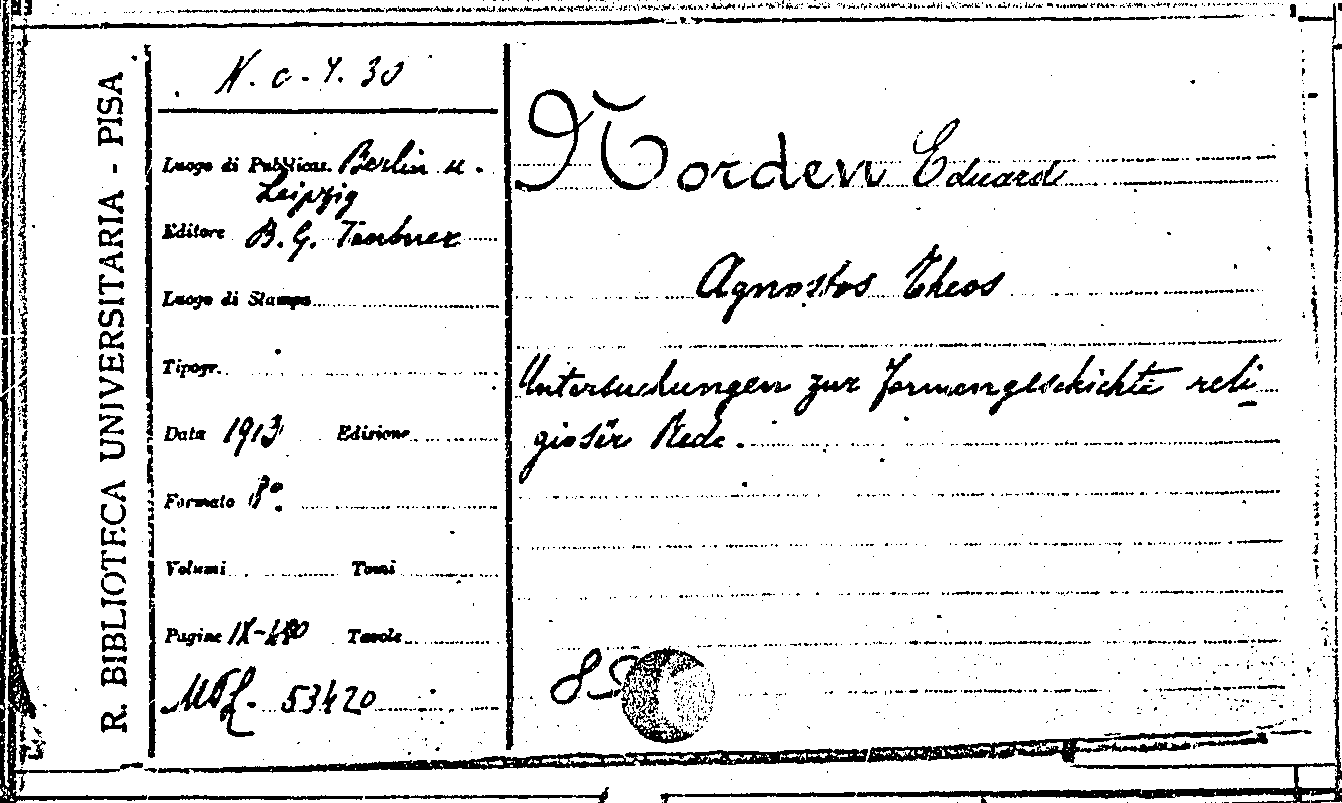 R. BIBLIOTECA UNIVERSITARIA - PISA
N. c. 4. 30
Luogo di Pubblicaz. Berlin u.
Leipzig
Editore B. G. Teubner
Luogo di Stampa
Tipogr.
Data 1913 Edizione
Formato 8º.
Volumi Tomi
Pagine IX-410 Tavole
53420
Norden Eduard
Agnostos Theos
Untersuchungen zur Formengeschichte reli-
giöser Rede.